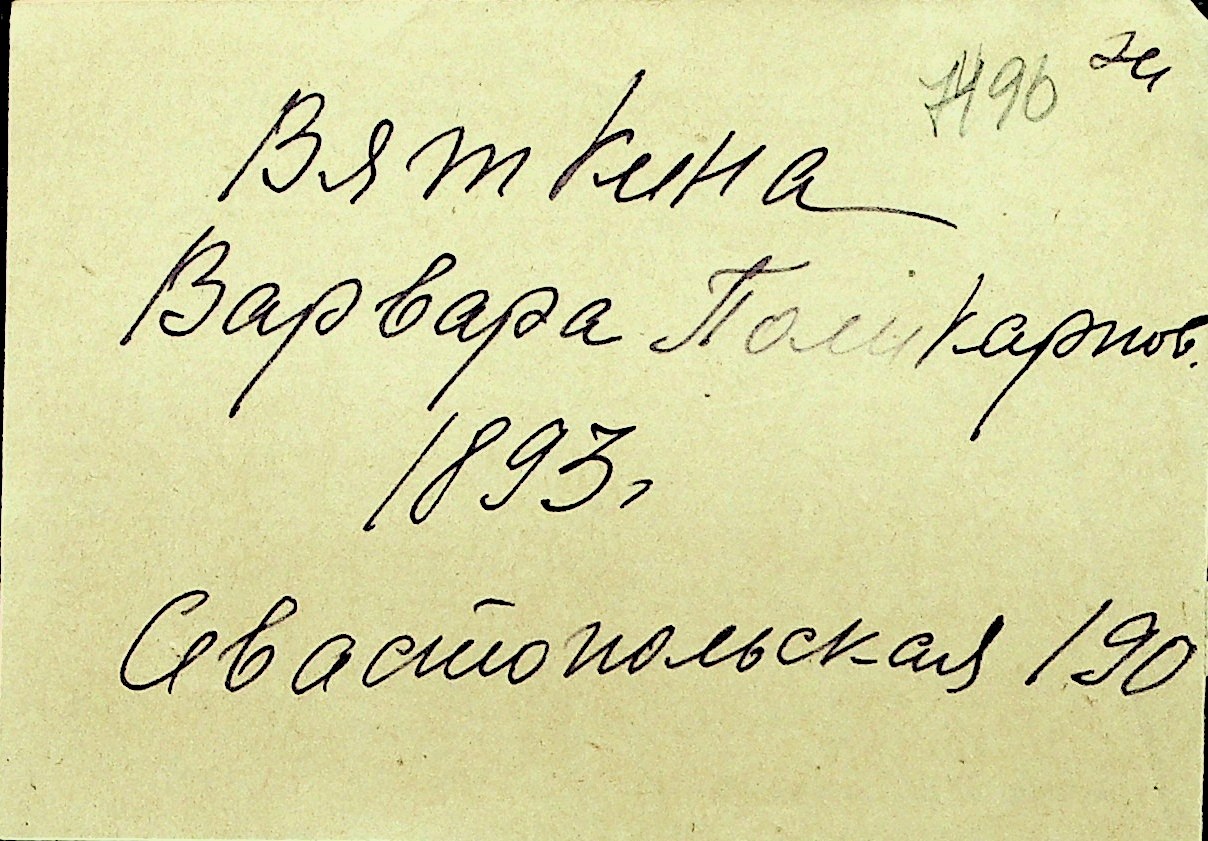 7490
Вяткина
Варвара Поликарпов.
1893 г
Севастопольская 190